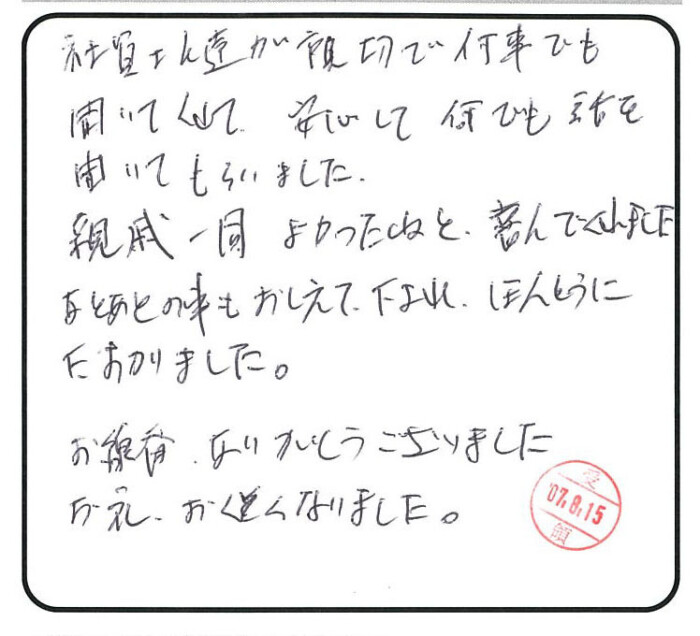 社員さん達が親切で何事でも
聞いてくれて、安心して何でも話を
聞いてもらいました。
親戚一同よかったねと、喜んでくれました
あとあとの事もおしえて下され、ほんとうに
たすかりました。
お線香、ありがとうございました
お礼、おくれてなりました。
受
'07.8.15
領